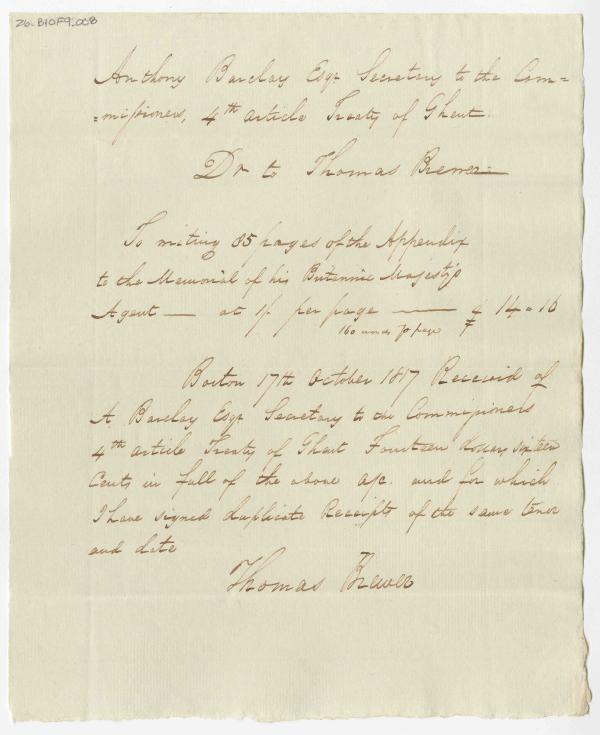 26-B10F9.008
Anthony Barclay Esqr Secretary to the Com=
=missioners, 4th article Treaty of Ghent.
Dr to Thomas Brewer
To writing 85 pages of the Appendix
to the Memorial of his Britannic Majesty's
Agent — at 1/ per page — $ 14-16
160 words pr page
Boston 17th October 1817 Received of
A Barclay Esqr Secretary to the Commissioners
4th article Treaty of Ghent Fourteen dollars sixteen
Cents in full of the above a/c. and for which
I have signed duplicate Receipts of the same tenor
and date
Thomas Brewer